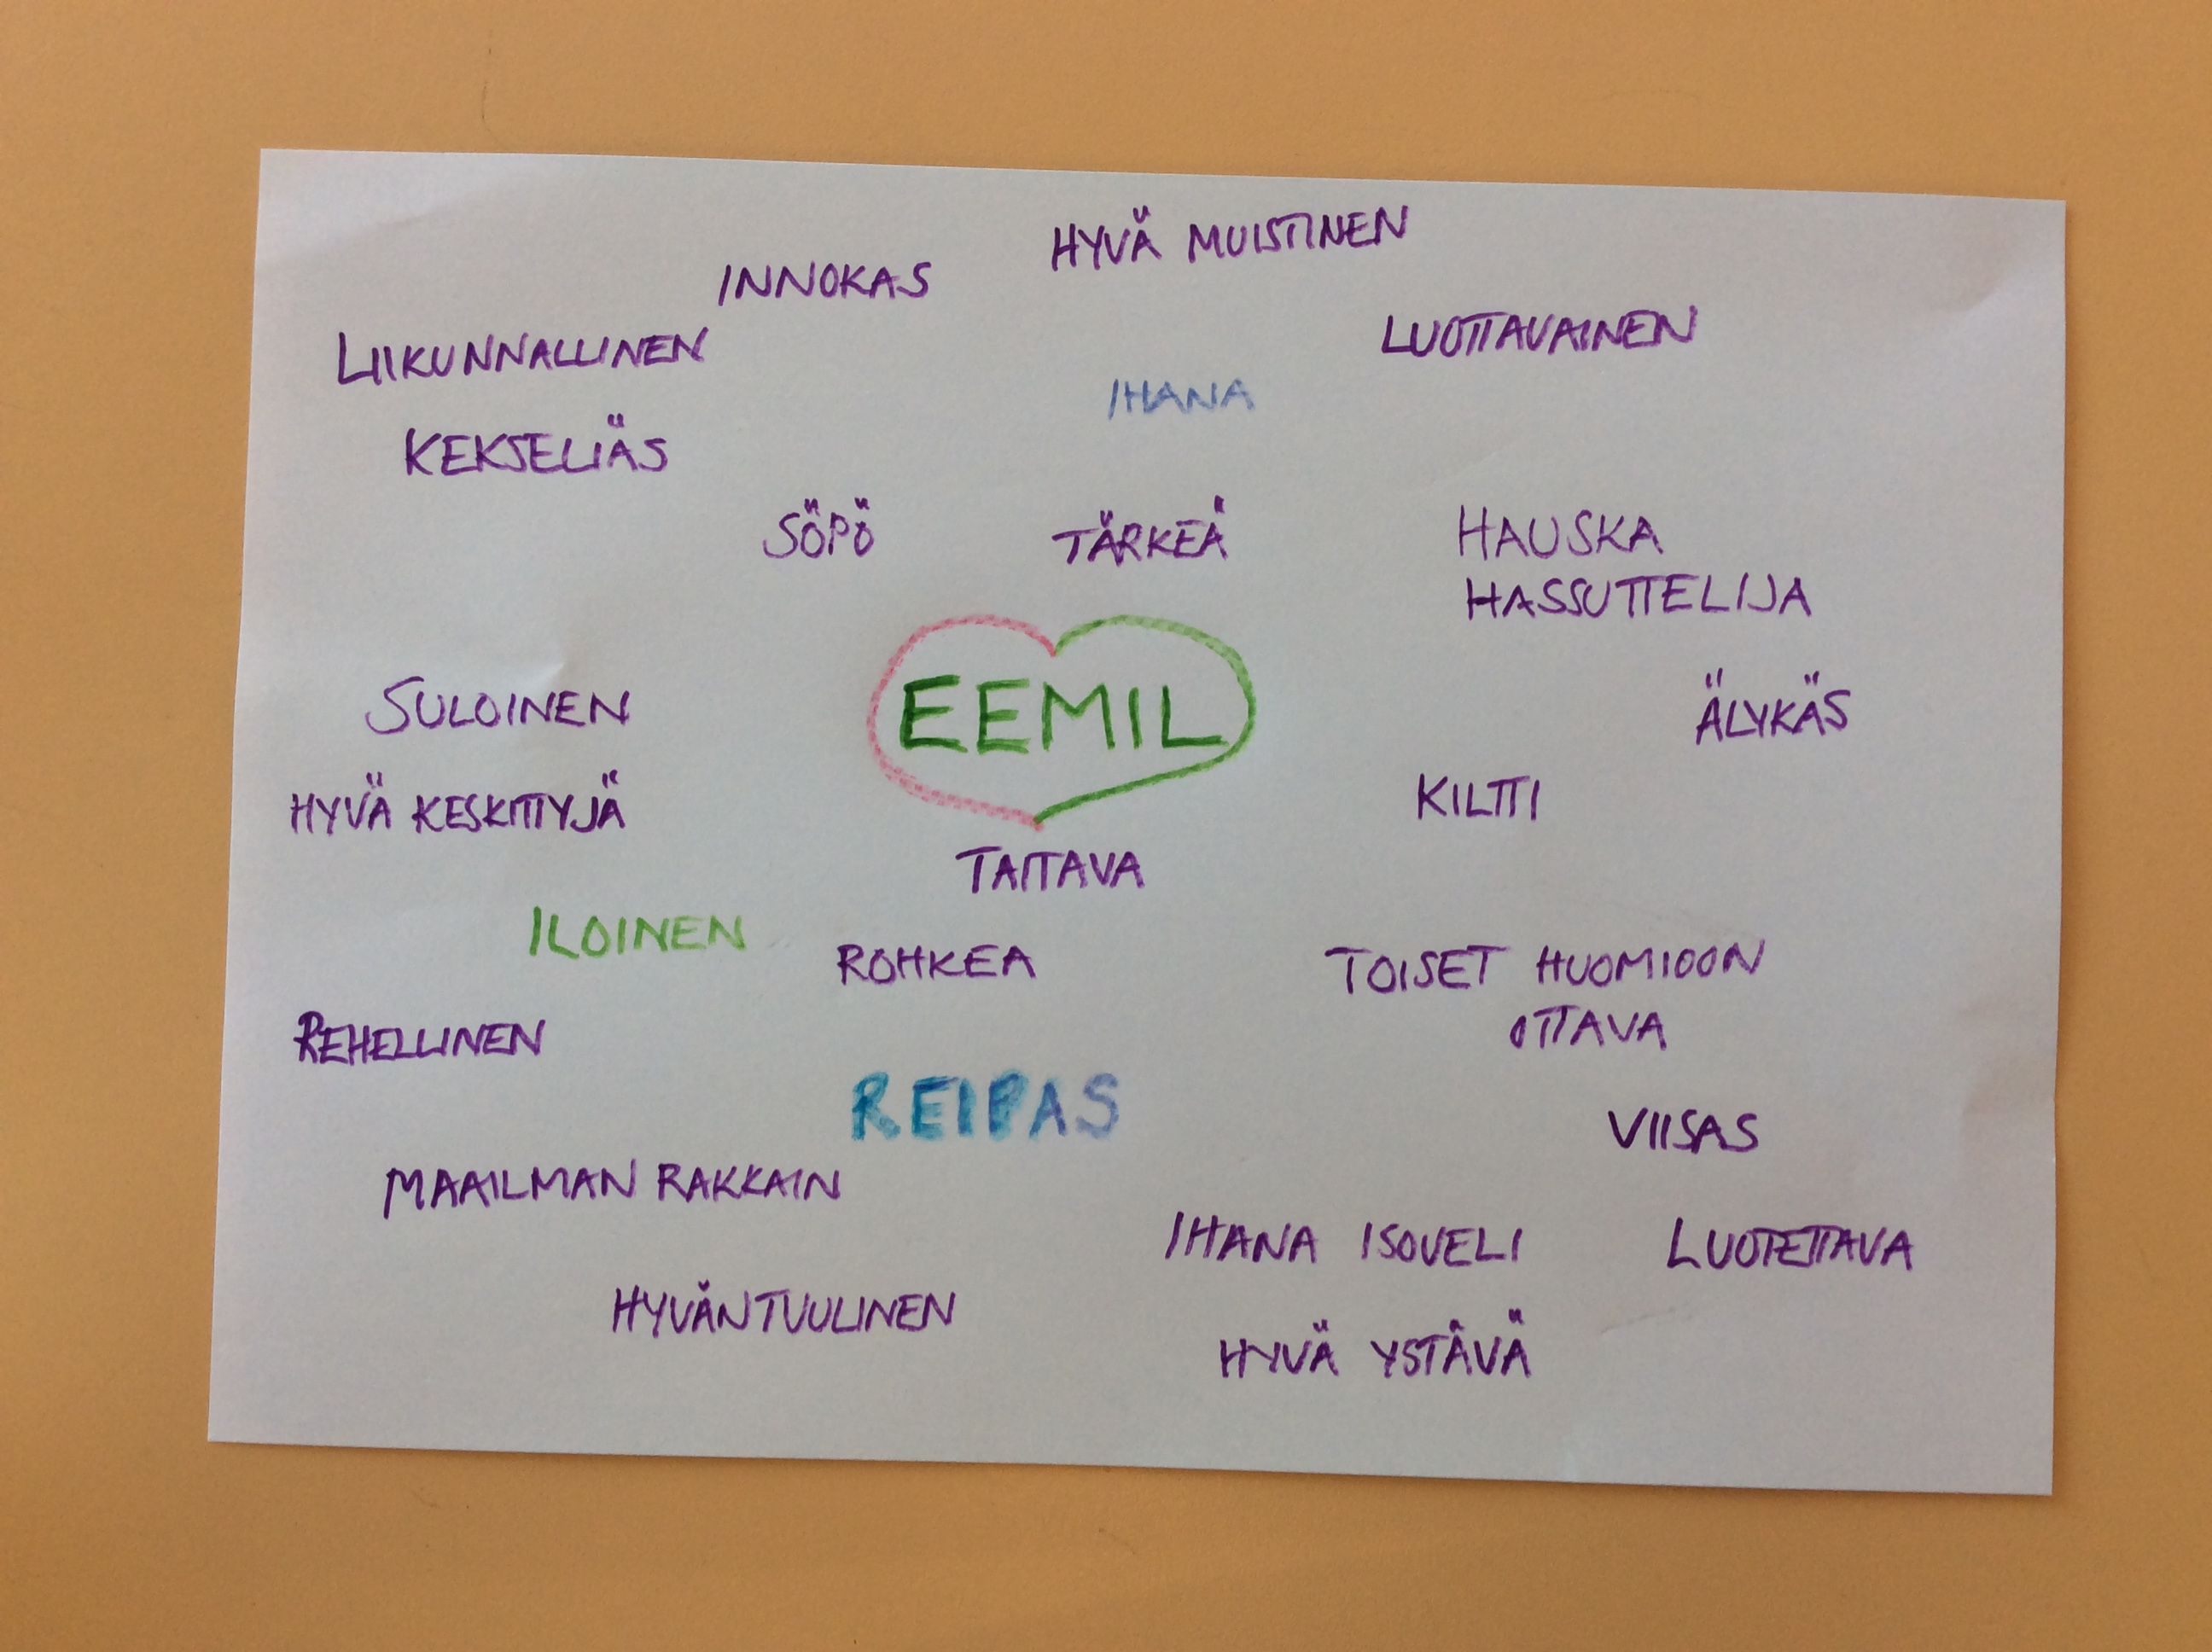 HYVÄ MUISTINEN
INNOKAS
LUOTTAVAINEN
LIIKUNNALLINEN
IHANA
KEKSELIÄS
SÖPÖ
TÄRKEÄ
HAUSKA
HASSUTTELIJA
EEMIL
SULOINEN
ÄLYKÄS
HYVÄ KESKITTYJÄ
KILTTI
TAITAVA
ILOINEN
ROHKEA
TOISET HUOMIOON
OTTAVA
REHELLINEN
REIPAS
VIISAS
MAAILMAN RAKKAIN
IHANA ISOVELI
LUOTETTAVA
HYVÄNTUULINEN
HYVÄ YSTÄVÄ